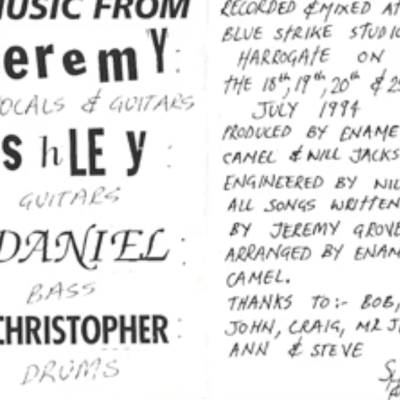 MUSIC FROM
eremy:
VOCALS & GUITARS
shLEy:
GUITARS
DANIEL:
BASS
CHRISTOPHER:
DRUMS
RECORDED & MIXED AT
BLUE STRIKE STUDIO
HARROGATE ON
THE 18th, 19th, 20th & 2
JULY 1994
PRODUCED BY ENAME
CAMEL & NILL JACKS
ENGINEERED BY NIL
ALL SONGS WRITTEN
BY JEREMY GROVE
ARRANGED BY ENAM
CAMEL.
THANKS TO:- BOB,
JOHN, CRAIG, MR J
ANN & STEVE